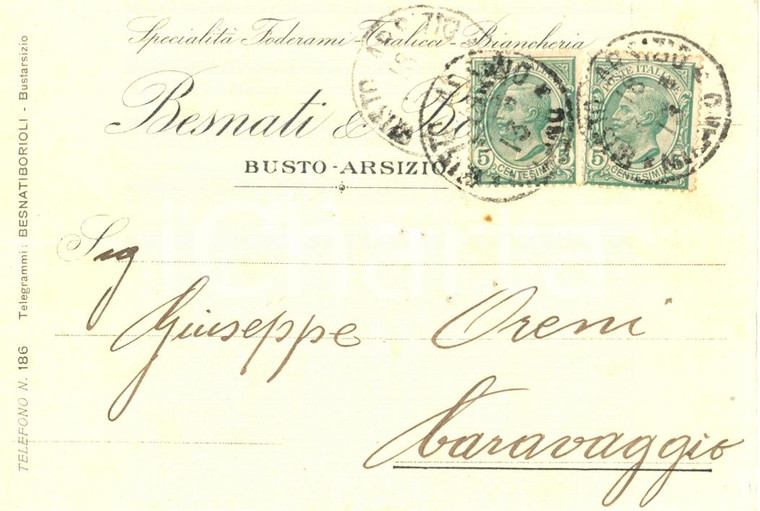 Specialità Foderami-Tralicci-Biancheria
Besnati & Bo
BUSTO-ARSIZIO
POSTE ITALIANE
5 CENTESIMI 5
5 CENTESIMI
BUSTO ARSIZIO
Sig
Giuseppe Oreni
Caravaggio
TELEFONO N. 186 Telegrammi: BESNATIBORIOLI - Bustarsizio